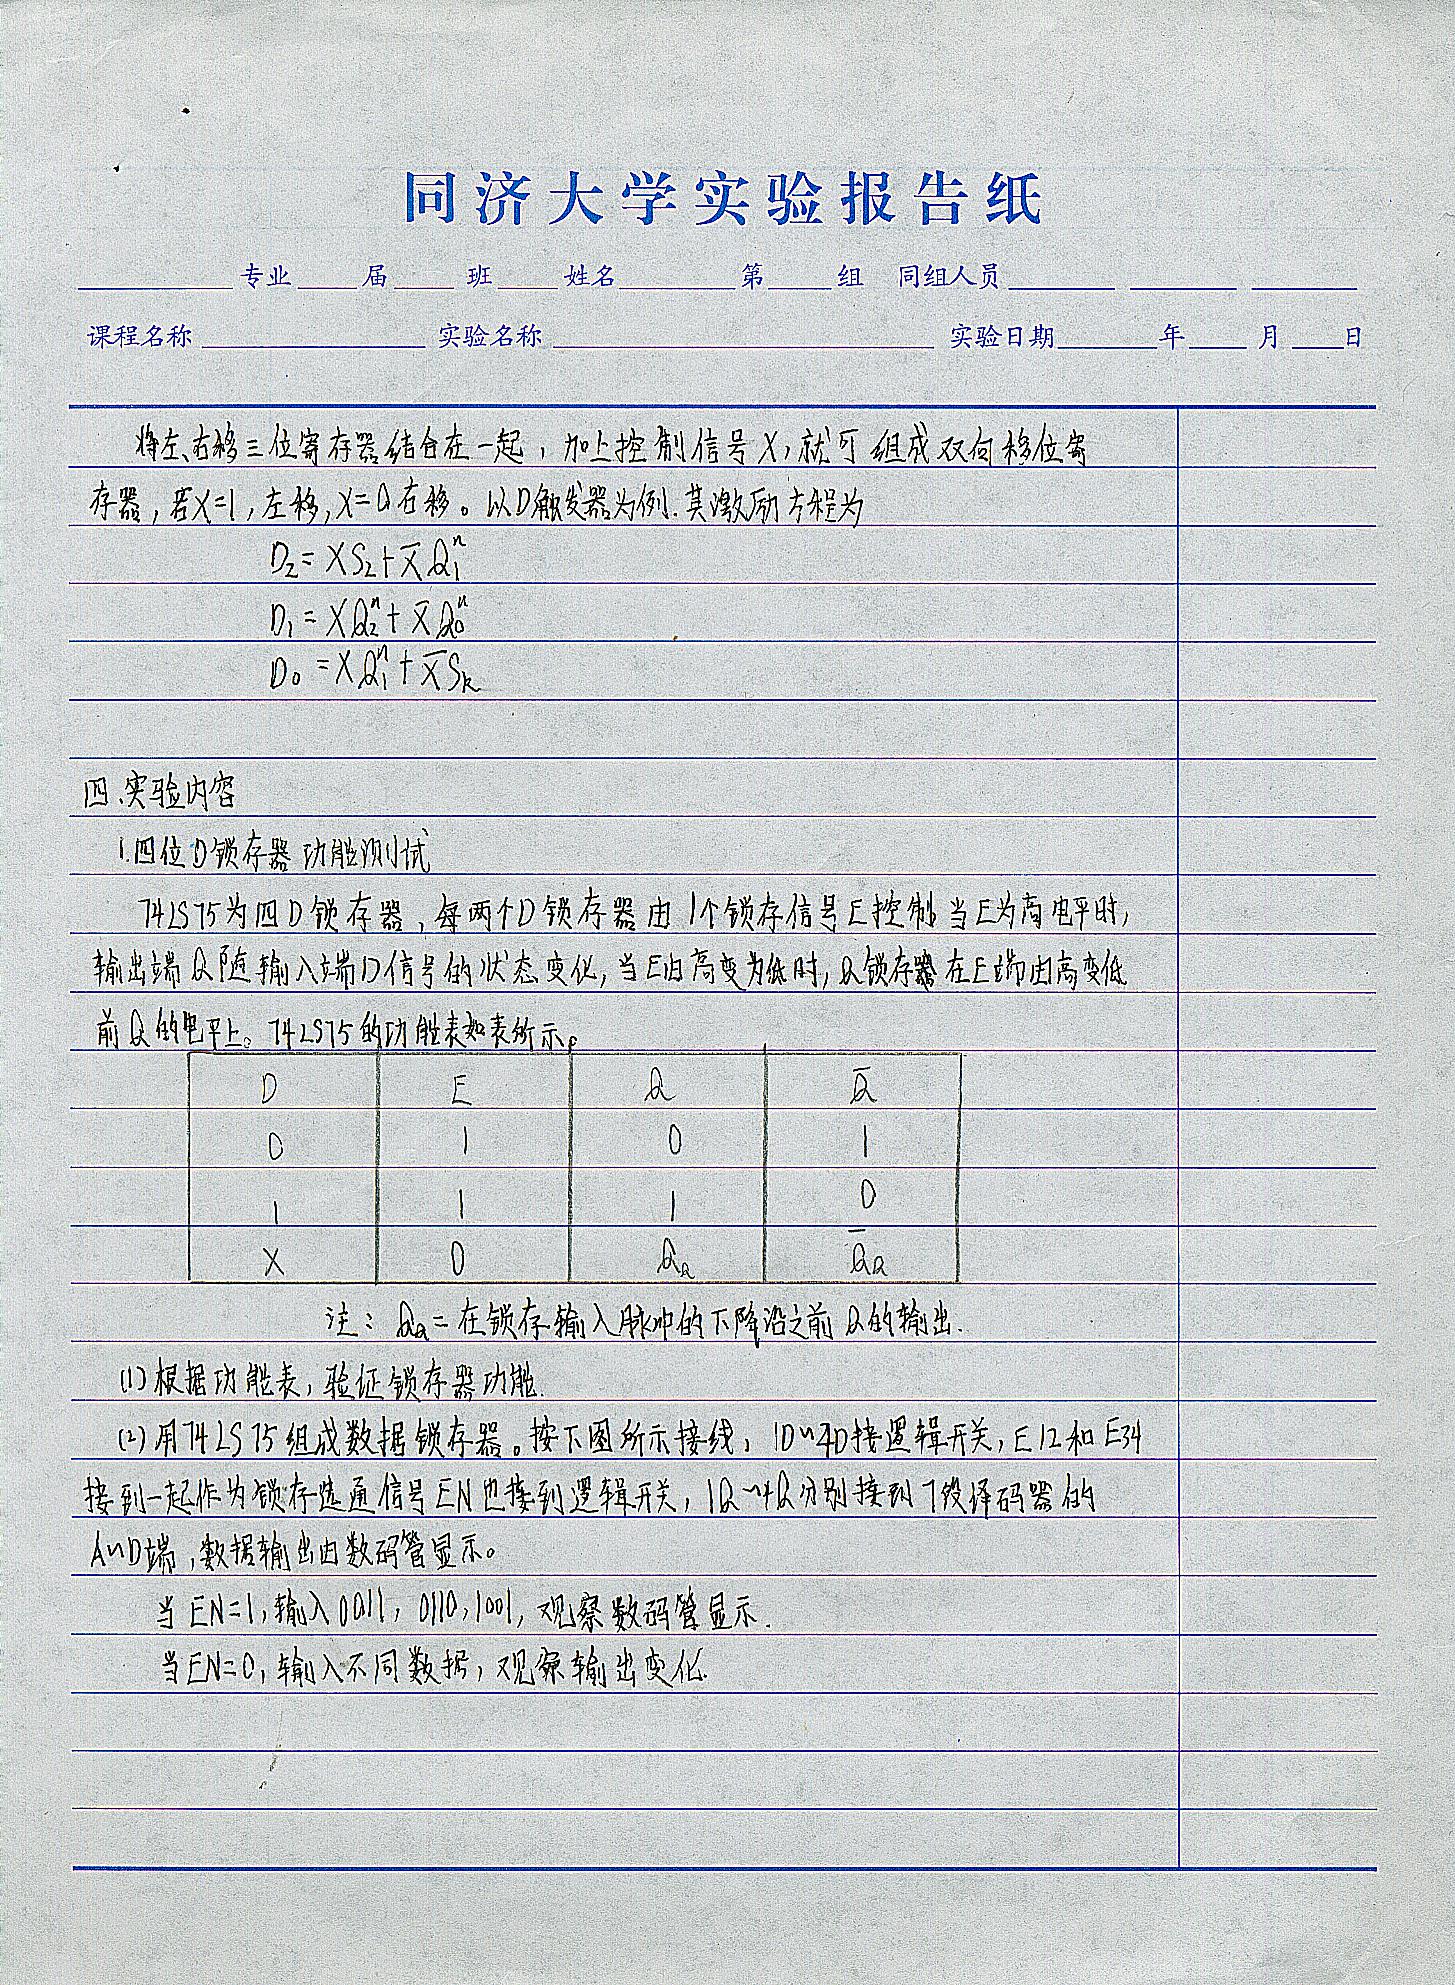 同济大学实验报告纸
专业 届 班 姓名 第 组 同组人员
课程名称 实验名称 实验日期 年 月 日
将左、右移三位寄存器结合在一起，加上控制信号X，就可组成双向移位寄
存器，若X=1，左移，X=0右移。以D触发器为例.其激励方程为
D₂=XS₂+X̅Q₁ⁿ
D₁=XQ₂ⁿ+X̅Q₀ⁿ
D₀=XQ₁ⁿ+X̅Sʀ
四.实验内容
1.四位D锁存器功能测试
74LS75为四D锁存器，每两个D锁存器由1个锁存信号E控制当E为高电平时，
输出端Q随输入端D信号的状态变化，当E由高变为低时，Q锁存器在E端由高变低
前Q的电平上。74LS75的功能表如表所示。
D E Q Q̅
0 1 0 1
1 1 1 0
X 0 Qa Q̅a
注：Qa=在锁存输入脉冲的下降沿之前Q的输出.
(1)根据功能表，验证锁存器功能.
(2)用74LS75组成数据锁存器。按下图所示接线，1D~4D接逻辑开关，E12和E34
接到一起作为锁存选通信号EN也接到逻辑开关，1Q~4Q分别接到7段译码器的
A~D端，数据输出由数码管显示。
当EN=1，输入0011，0110，1001，观察数码管显示.
当EN=0，输入不同数据，观察输出变化.